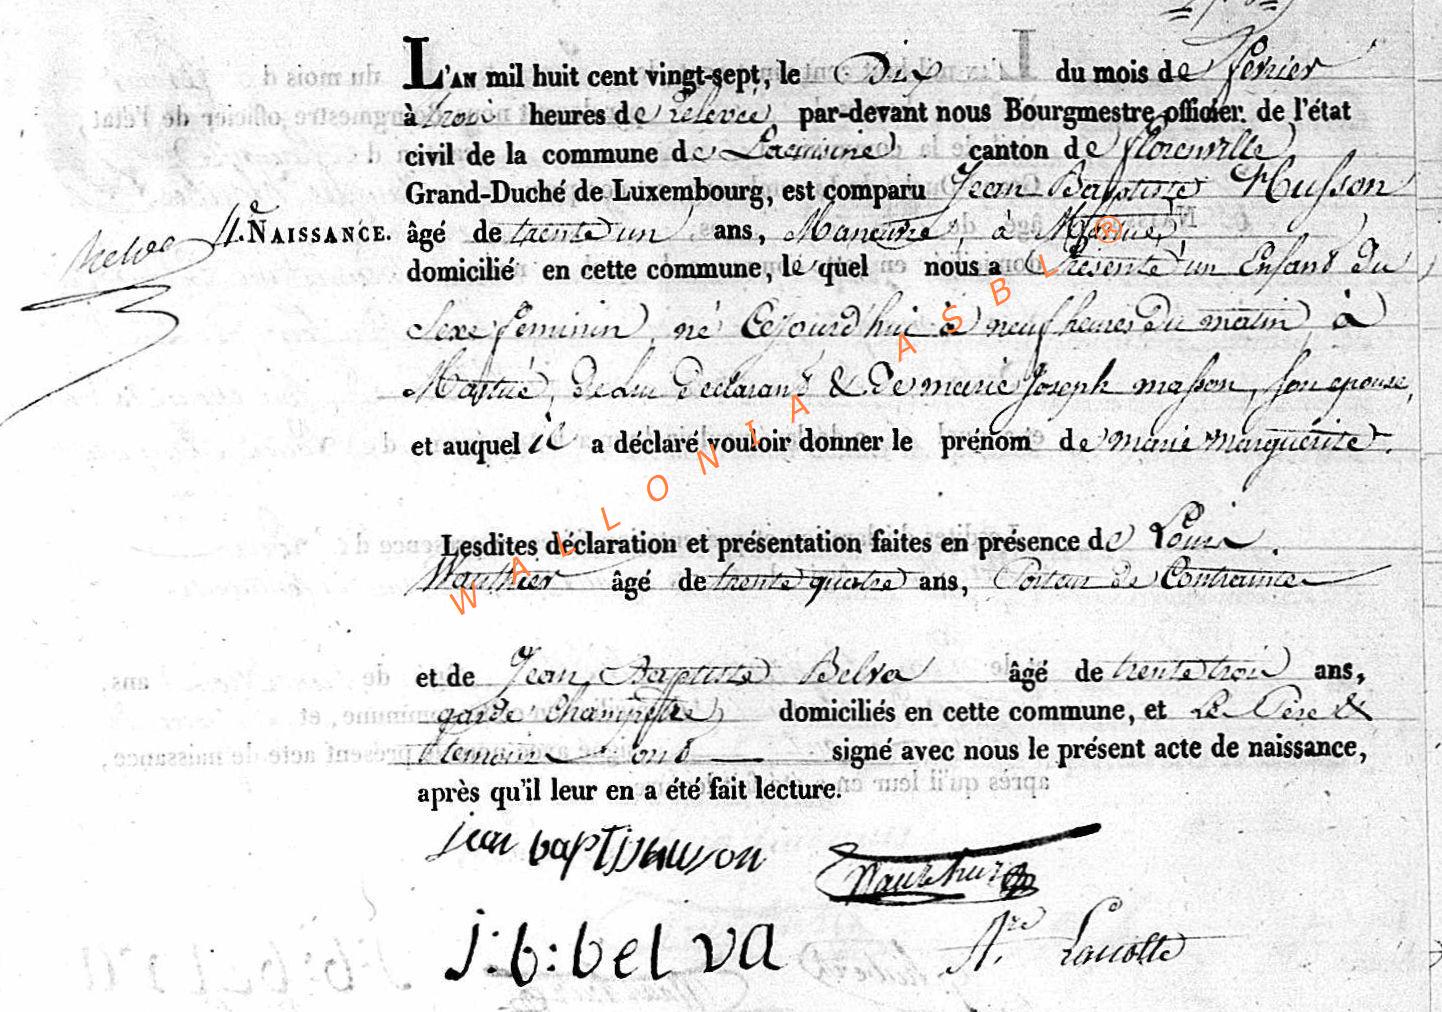 L'AN mil huit cent vingt-sept, le Dix du mois de fevrier
à trois heures de relevée par-devant nous Bourgmestre officier de l'état
civil de la commune de Lacuisine canton de florenville
Grand-Duché de Luxembourg, est comparu Jean Baptiste Husson
4.e NAISSANCE. âgé de trente un ans, Maneuvre, à Martué,
domicilié en cette commune, le quel nous a Présenté un Enfant du
Sexe feminin, né Cejourd'hui à neuf heures du matin, à
Martué, de Lui Déclarant & De marie Joseph masson, son epouse,
et auquel il a déclaré vouloir donner le prénom de marie marguerite.
Lesdites déclaration et présentation faites en présence de Louis
Wauthier âgé de trente quatre ans, Porteur de Contrainte
et de Jean Baptiste Belva âgé de trente trois ans,
garde Champetre domiciliés en cette commune, et Le Père &
temoins ont signé avec nous le présent acte de naissance,
après qu'il leur en a été fait lecture.
jean baptis husson
Wauthier
j:b:belva
Lacolle
WALLONIA ASBL ®